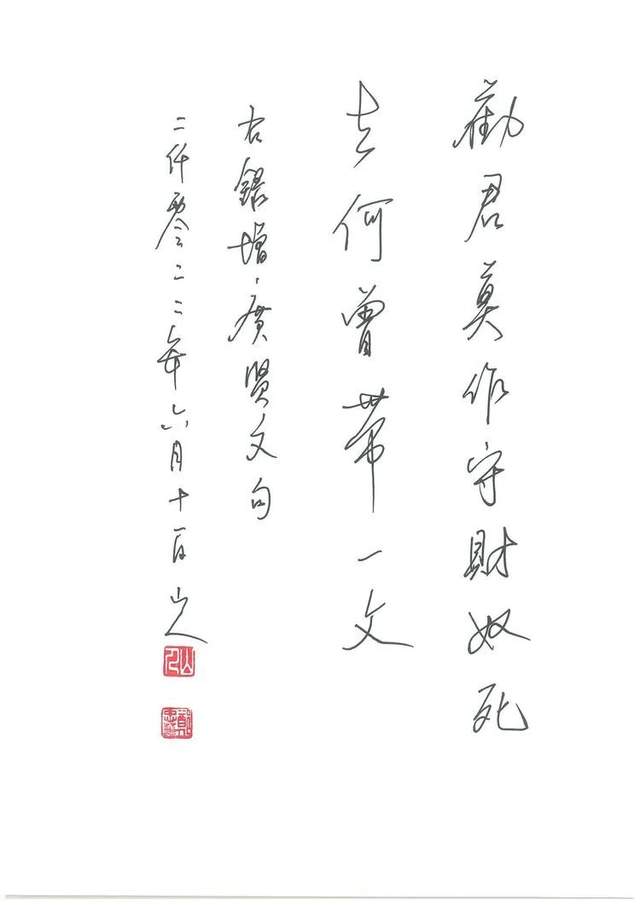 勸君莫作守財奴死
去何曾帶一文
右錄增、廣賢文句
二仟零二二年六月十一日山人
山人